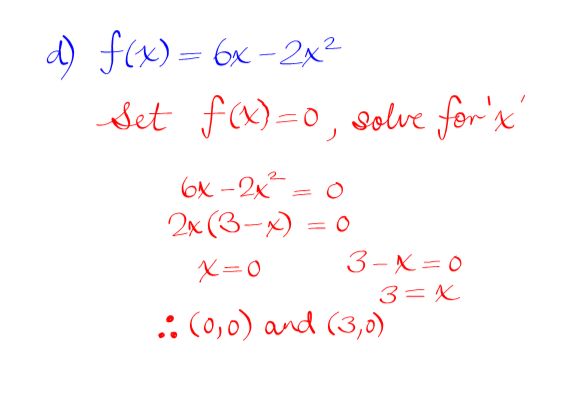 d) f(x) = 6x - 2x²
Set f(x)=0, solve for 'x'
6x - 2x² = 0
2x(3-x) = 0
x=0 3-x=0
3=x
∴ (0,0) and (3,0)